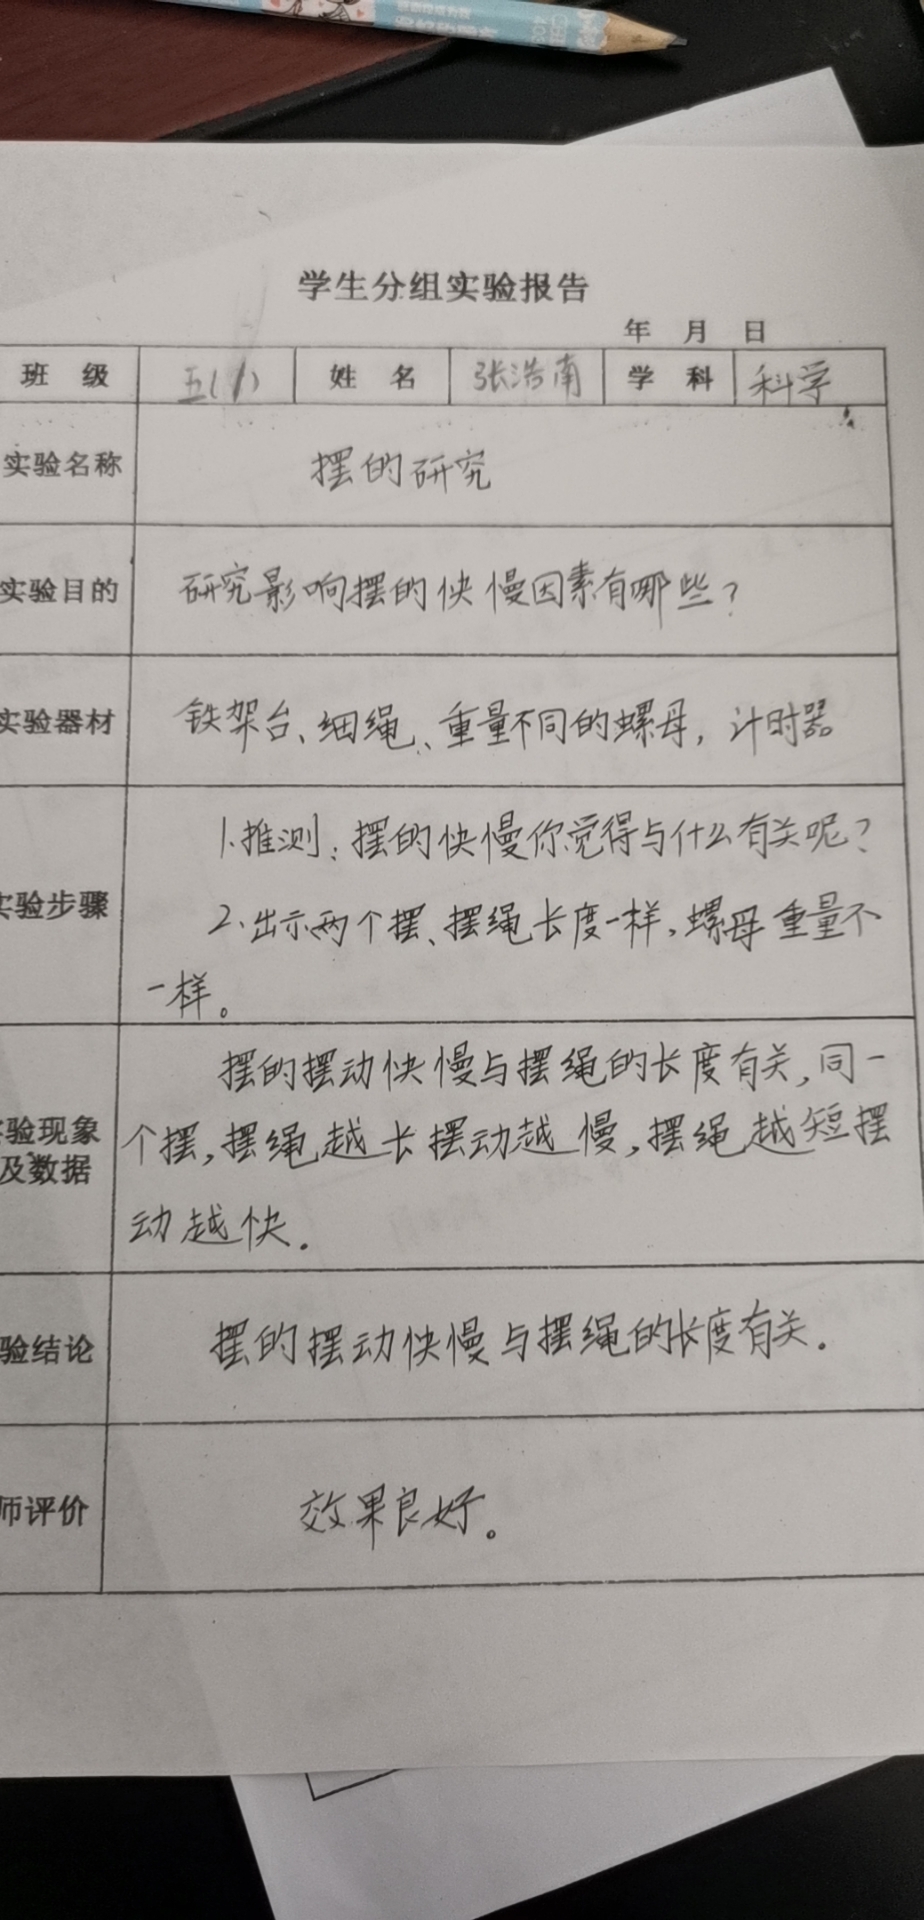 学生分组实验报告
年 月 日
班 级 五(1) 姓 名 张浩南 学 科 科学
实验名称 摆的研究
实验目的 研究影响摆的快慢因素有哪些?
实验器材 铁架台、细绳、重量不同的螺母, 计时器
实验步骤 1.推测:摆的快慢你觉得与什么有关呢?
2.出示两个摆、摆绳长度一样,螺母重量不
一样。
摆的摆动快慢与摆绳的长度有关,同一
验现象 个摆,摆绳越长摆动越慢,摆绳越短摆
及数据
动越快.
验结论 摆的摆动快慢与摆绳的长度有关.
师评价 效果良好。